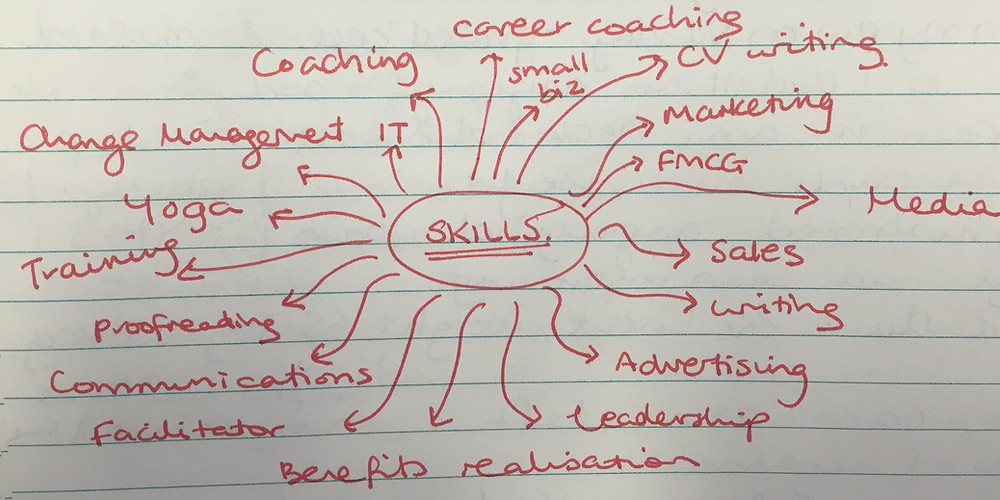 career coaching
Coaching
small
biz
CV writing.
Change Management
IT
Marketing
FMCG
Yoga
Media
SKILLS.
Training
Sales
Proofreading
writing
Communications
Advertising
Facilitator
Leadership
Benefits realisation